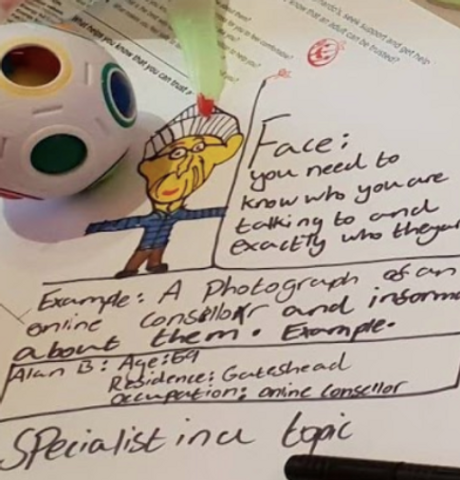 nardo's, seek support and get help
know that an adult can be trusted?
What helps you know that you can trust
Face:
you need to
know who you are
talking to and
exactly who they a
Example: A Photograph of an
online consellor and inform
about them. Example.
Alan B: Age:69
Residence: Gateshead
occupation: online consellor
SPecialist in a topic